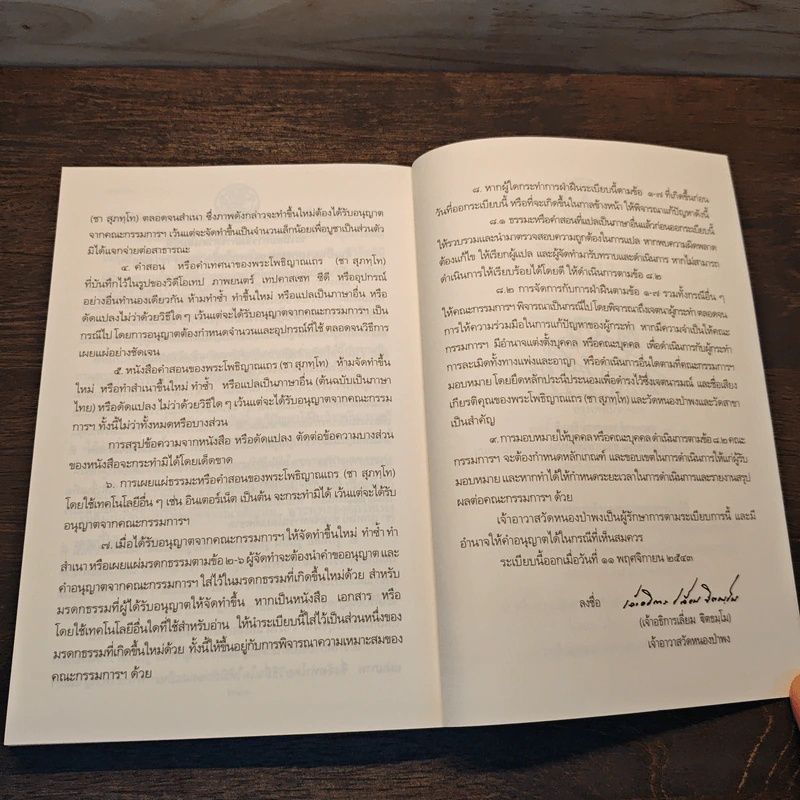 (ชา สุภทฺโท) ตลอดจนสำเนา ซึ่งภาพดังกล่าวจะทำขึ้นใหม่ต้องได้รับอนุญาต
จากคณะกรรมการฯ เว้นแต่จะจัดทำขึ้นเป็นจำนวนเล็กน้อยเพื่อบูชาเป็นส่วนตัว
มิได้แจกจ่ายต่อสาธารณะ
๔. คำสอน หรือคำเทศนาของพระโพธิญาณเถร (ชา สุภทฺโท)
ที่บันทึกไว้ในรูปของวิดีโอเทป ภาพยนตร์ เทปคาสเซท ซีดี หรืออุปกรณ์
อย่างอื่นทำนองเดียวกัน ห้ามทำซ้ำ ทำขึ้นใหม่ หรือแปลเป็นภาษาอื่น หรือ
ดัดแปลงไม่ว่าด้วยวิธีใด ๆ เว้นแต่จะได้รับอนุญาตจากคณะกรรมการฯ เป็น
กรณีไป โดยการอนุญาตต้องกำหนดจำนวนและอุปกรณ์ที่ใช้ ตลอดจนวิธีการ
เผยแผ่อย่างชัดเจน
๕. หนังสือคำสอนของพระโพธิญาณเถร (ชา สุภทฺโท) ห้ามจัดทำขึ้น
ใหม่ หรือทำสำเนาขึ้นใหม่ ทำซ้ำ หรือแปลเป็นภาษาอื่น (ต้นฉบับเป็นภาษา
ไทย) หรือดัดแปลง ไม่ว่าด้วยวิธีใด ๆ เว้นแต่จะได้รับอนุญาตจากคณะกรรม
การฯ ทั้งนี้ไม่ว่าทั้งหมดหรือบางส่วน
การสรุปข้อความจากหนังสือ หรือดัดแปลง ตัดต่อข้อความบางส่วน
ของหนังสือจะกระทำมิได้โดยเด็ดขาด
๖. การเผยแผ่ธรรมะหรือคำสอนของพระโพธิญาณเถร (ชา สุภทฺโท)
โดยใช้เทคโนโลยีอื่น ๆ เช่น อินเตอร์เน็ต เป็นต้น จะกระทำมิได้ เว้นแต่จะได้รับ
อนุญาตจากคณะกรรมการฯ
๗. เมื่อได้รับอนุญาตจากคณะกรรมการฯ ให้จัดทำขึ้นใหม่ ทำซ้ำ ทำ
สำเนา หรือเผยแผ่มรดกธรรมตามข้อ ๒-๖ ผู้จัดทำจะต้องนำคำขออนุญาต และ
คำอนุญาตจากคณะกรรมการฯ ใส่ไว้ในมรดกธรรมที่เกิดขึ้นใหม่ด้วย สำหรับ
มรดกธรรมที่ผู้ได้รับอนุญาตให้จัดทำขึ้น หากเป็นหนังสือ เอกสาร หรือ
โดยใช้เทคโนโลยีอื่นใดที่ใช้สำหรับอ่าน ให้นำระเบียบนี้ใส่ไว้เป็นส่วนหนึ่งของ
มรดกธรรมที่เกิดขึ้นใหม่ด้วย ทั้งนี้ให้ขึ้นอยู่กับการพิจารณาความเหมาะสมของ
คณะกรรมการฯ ด้วย
๘. หากผู้ใดกระทำการฝ่าฝืนระเบียบนี้ตามข้อ ๑-๗ ที่เกิดขึ้นก่อน
วันที่ออกระเบียบนี้ หรือที่จะเกิดขึ้นในกาลข้างหน้า ให้พิจารณาแก้ปัญหาดังนี้
๘.๑ ธรรมะหรือคำสอนที่แปลเป็นภาษาอื่นแล้วก่อนออกระเบียบนี้
ให้รวบรวมและนำมาตรวจสอบความถูกต้องในการแปล หากพบความผิดพลาด
ต้องแก้ไข ให้เรียกผู้แปล และผู้จัดทำมารับทราบและดำเนินการ หากไม่สามารถ
ดำเนินการให้เรียบร้อยได้โดยดี ให้ดำเนินการตามข้อ ๘.๒
๘.๒ การจัดการกับการฝ่าฝืนตามข้อ ๑-๗ รวมทั้งกรณีอื่น ๆ
ให้คณะกรรมการฯ พิจารณาเป็นกรณีไป โดยพิจารณาถึงเจตนาผู้กระทำ ตลอดจน
การให้ความร่วมมือในการแก้ปัญหาของผู้กระทำ หากมีความจำเป็นให้คณะ
กรรมการฯ มีอำนาจแต่งตั้งบุคคล หรือคณะบุคคล เพื่อดำเนินการกับผู้กระทำ
การละเมิดทั้งทางแพ่งและอาญา หรือดำเนินการอื่นใดตามที่คณะกรรมการฯ
มอบหมาย โดยยึดหลักประนีประนอมเพื่อดำรงไว้ซึ่งเจตนารมณ์ และชื่อเสียง
เกียรติคุณของพระโพธิญาณเถร (ชา สุภทฺโท) และวัดหนองป่าพงและวัดสาขา
เป็นสำคัญ
๙. การมอบหมายให้บุคคล หรือคณะบุคคล ดำเนินการตามข้อ ๘.๒ คณะ
กรรมการฯ จะต้องกำหนดหลักเกณฑ์ และขอบเขตในการดำเนินการให้แก่ผู้รับ
มอบหมาย และหากทำได้ให้กำหนดระยะเวลาในการดำเนินการและรายงานสรุป
ผลต่อคณะกรรมการฯ ด้วย
เจ้าอาวาสวัดหนองป่าพงเป็นผู้รักษาการตามระเบียบการนี้ และมี
อำนาจให้คำอนุญาตได้ในกรณีที่เห็นสมควร
ระเบียบนี้ออกเมื่อวันที่ ๑๑ พฤศจิกายน ๒๕๔๓
ลงชื่อ
(เจ้าอธิการเลี่ยม ฐิตธมฺโม)
เจ้าอาวาสวัดหนองป่าพง